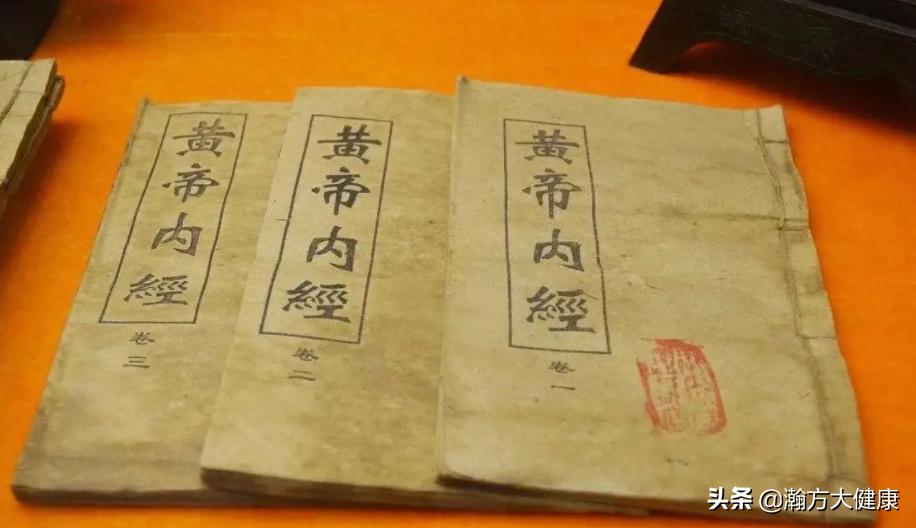 黄帝内經
卷一
黄帝内經
卷二
黄帝内經
卷三
头条 @瀚方大健康